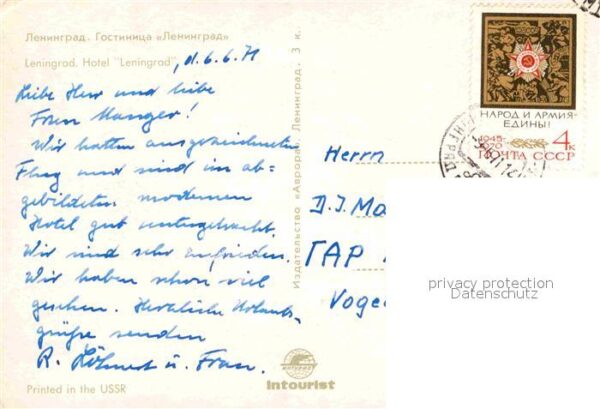 Ленинград. Гостиница «Ленинград»
Leningrad. Hotel "Leningrad", d. 6.6.71
Liebe Herr und liebe
Frau Manger!
Wir hatten ausgezeichneten
Flug und sind im ab=
gebildeten modernen
Hotel gut untergebracht.
Wir sind sehr zufrieden.
Wir haben schon viel
gesehen. Herzliche Urlaubs-
grüße senden
R. u. Frau.
Printed in the USSR
Издательство «Аврора» Ленинград. 3 к.
intourist
НАРОД И АРМИЯ-
ЕДИНЫ!
1945-
1970
4к
ПОЧТА СССР
Herrn
D. J. Ma
ГАР
Voge
privacy protection
Datenschutz